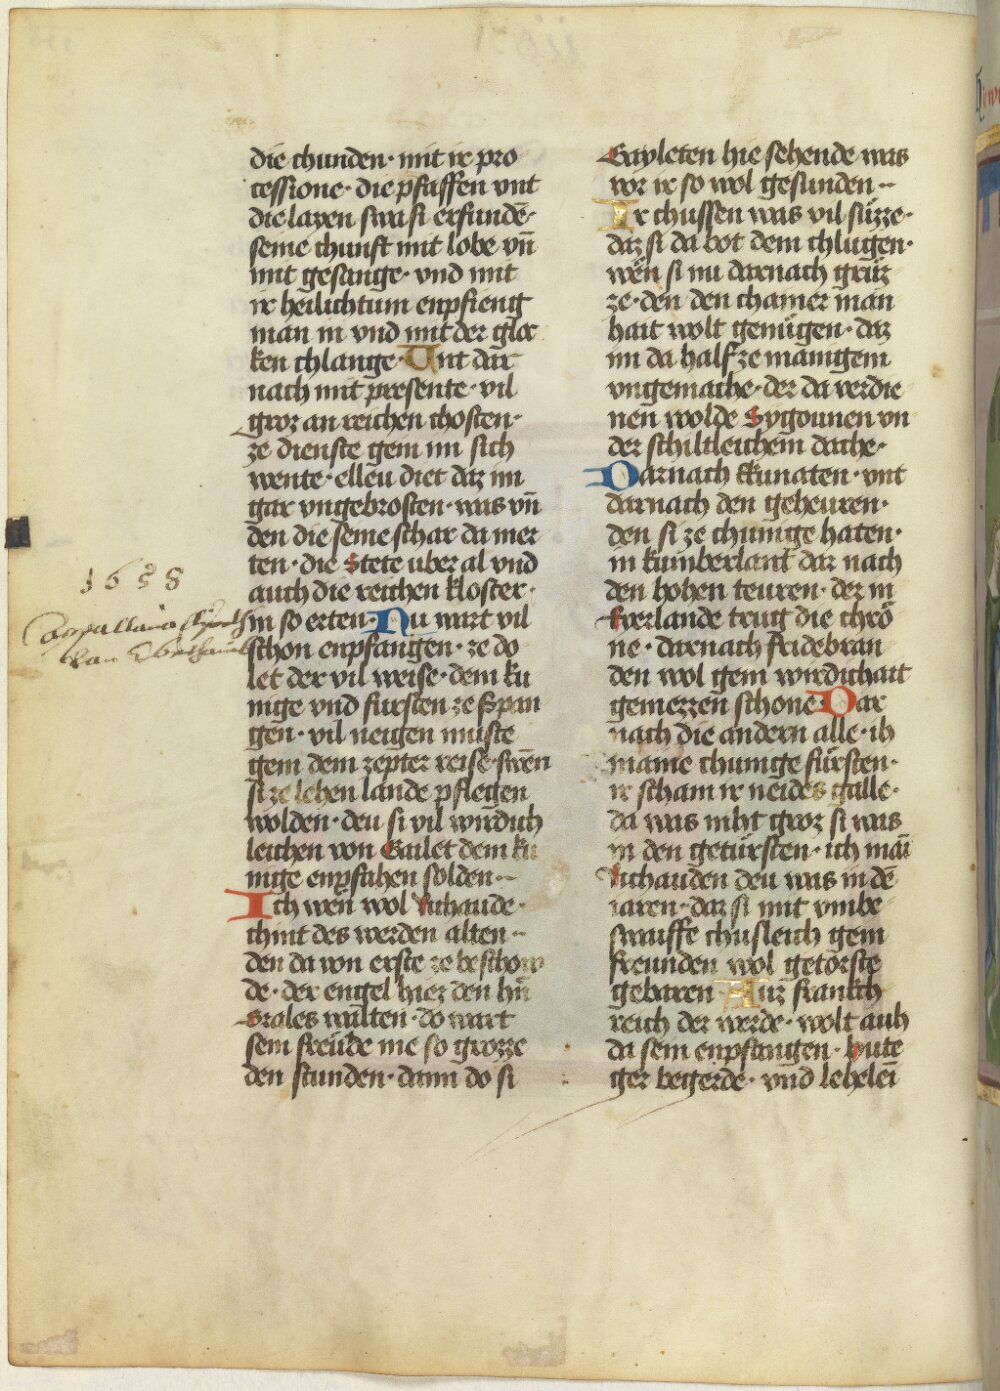 die chunden· mit ir pro
cessione· die pfaffen vnt
die layen swa si erfundē·
seine chunft mit lobe vn̄
mit gesange· vnd mit
ir heilichtum enpfieng
man in vnd mit der gloc
ken chlange· Unt dar
nach mit presente· vil
groz an reichen chosten·
ze dienste gein im sich
wente· elleu diet daz im
gar vngebrosten· was vn̄
den die seine schar da mer
ten· die Stete uber al vnd
auch die reichen kloster·
in so erten· Nu wart vil
schon enpfangen· ze do
let der vil weise· dem ku
nige vnd fursten ze span
gen· vil neigen muste
gein dem zepter reise· swēn
si ze lehen lande pflegen
wolden· deu si vil wirdich
leichen von Gailet dem ku
nige enpfahen solden··
Ich wēn wol
chint des werden alten··
den da von erste ze beschow
de· der engel hiez den
Grales walten· do wart
sein freude nie so grozze
den stunden· dann do si
Gayleten hie sehende was
vor ir so wol gesunden··
Ir chussen was vil süzze·
daz si da bot dem chlugen·
wēn si nu darnach grüz
ze· den den chamer man
hait wolt genügen· daz
im da half ze manigem
vngemache· der da verdie
nen wolde Sygounen vn
der schiltleichem dache·
Darnach Ekunaten· vnt
darnach den geheuren·
den si ze chunige haten·
in kumberlant dar nach
den hohen teuren· der in
Yverlande trug die chrō
ne· darnach fridebran
den wol gein wirdichait
gemezzen schone· Dar
nach die andern alle· ih
maine chunige fürsten·
ir scham ir neides galle·
da was niht groz si was
in den getürsten· ich mai
deu was in dē
iaren· daz si mit vmbe
swaiffe chusleich gein
freunden wol getörste
gebaren· Auz franckh
reich der werde· wolt auh
da sein enpfangen· hute
ger begerde· vnd leheleī
1658